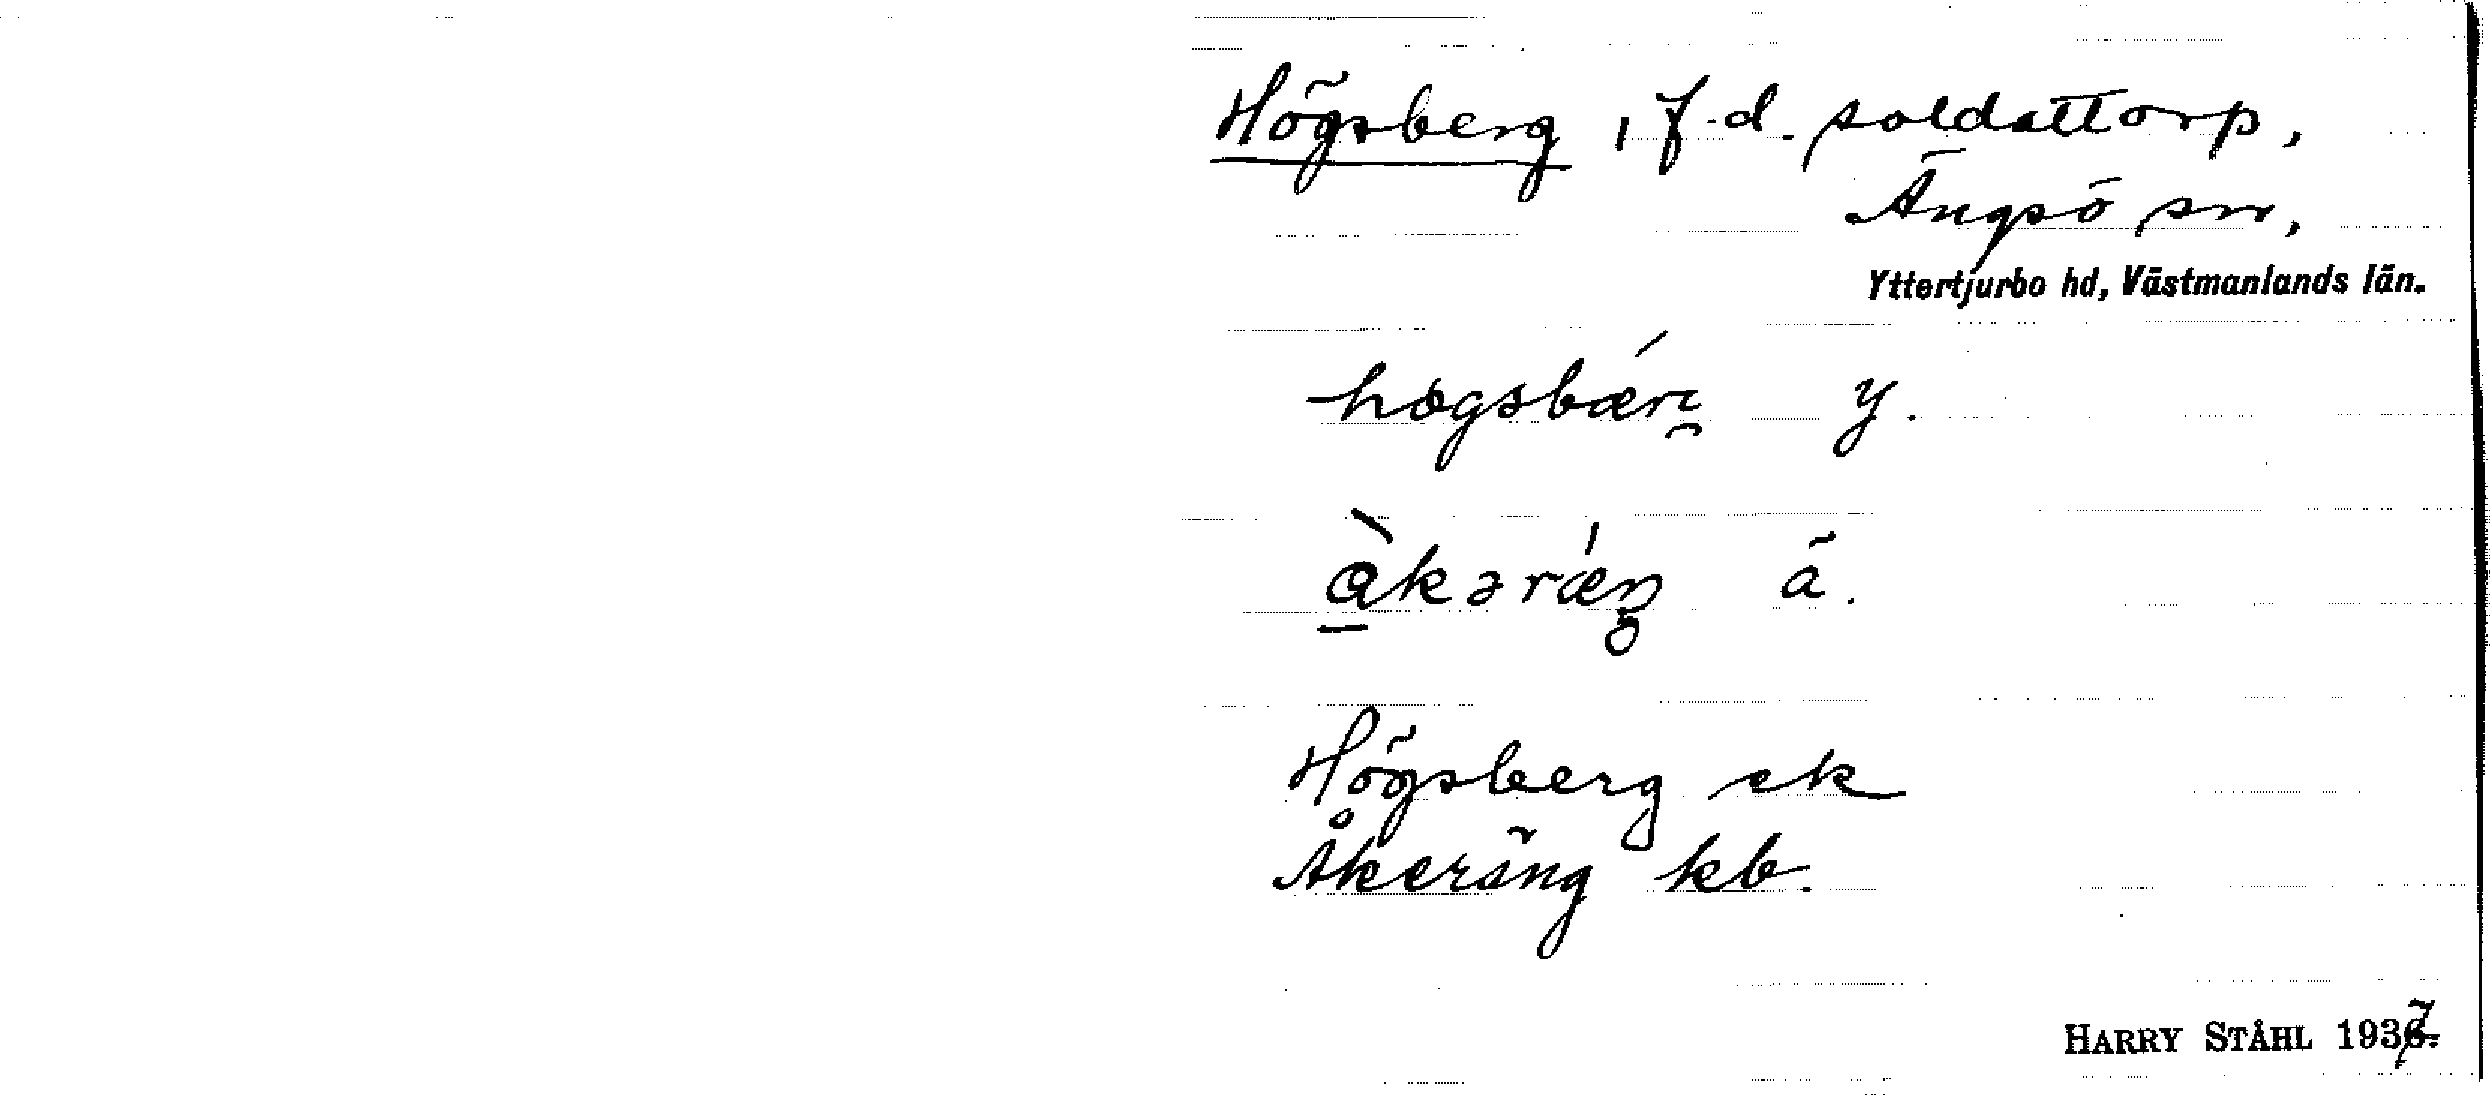 Högsberg, f.d. soldattorp,
Ängsö sn,
Yttertjurbo hd, Västmanlands län.
y.
ä.
Högsberg ek
Åkeräng kb.
HARRY STÅHL 1937.